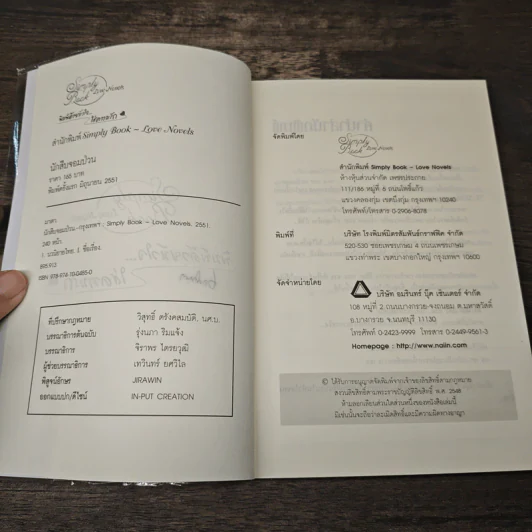 Simply Book
Love Novels
สำนักพิมพ์ Simply Book – Love Novels
นักสืบจอมป่วน
ราคา 148 บาท
พิมพ์ครั้งแรก มิถุนายน 2551
นักสืบจอมป่วน.-กรุงเทพฯ : Simply Book – Love Novels, 2551.
240 หน้า.
1. นวนิยายไทย. I. ชื่อเรื่อง.
895.913
ที่ปรึกษากฎหมาย วิสุทธิ์ ตรังคสมบัติ, นศ.บ.
บรรณาธิการต้นฉบับ รุ่งนภา ริมแจ้ง
บรรณาธิการ จิราพร ไตรยวุฒิ
ผู้ช่วยบรรณาธิการ เทวินทร์ ยศวิไล
พิสูจน์อักษร JIRAWIN
ออกแบบปก/ดีไซน์ IN-PUT CREATION
จัดพิมพ์โดย
Simply Book
Love Novels
สำนักพิมพ์ Simply Book – Love Novels
ห้างหุ้นส่วนจำกัด เพชรประกาย
111/186 หมู่ที่ 6 ถนนโพธิ์แก้ว
แขวงคลองกุ่ม เขตบึงกุ่ม กรุงเทพฯ 10240
โทรศัพท์/โทรสาร 0-2906-8078
พิมพ์ที่ บริษัท โรงพิมพ์มิตรสัมพันธ์กราฟฟิค จำกัด
520-530 ซอยเพชรเกษม 4 ถนนเพชรเกษม
แขวงท่าพระ เขตบางกอกใหญ่ กรุงเทพฯ 10600
จัดจำหน่ายโดย
บริษัท อมรินทร์ บุ๊ค เซ็นเตอร์ จำกัด
108 หมู่ที่ 2 ถนนบางกรวย-จงถนอม ต.มหาสวัสดิ์
อ.บางกรวย จ.นนทบุรี 11130
โทรศัพท์ 0-2423-9999 โทรสาร 0-2449-9561-3
Homepage : http://www.naiin.com
© ได้รับการอนุญาตจัดพิมพ์จากเจ้าของลิขสิทธิ์ตามกฎหมาย
สงวนลิขสิทธิ์ตามพระราชบัญญัติลิขสิทธิ์ พ.ศ.
ห้ามลอกเลียนส่วนใดส่วนหนึ่งของหนังสือเล่มนี้
มิเช่นนั้นจะถือว่าละเมิดสิทธิ์และมีความผิดทางอาญา